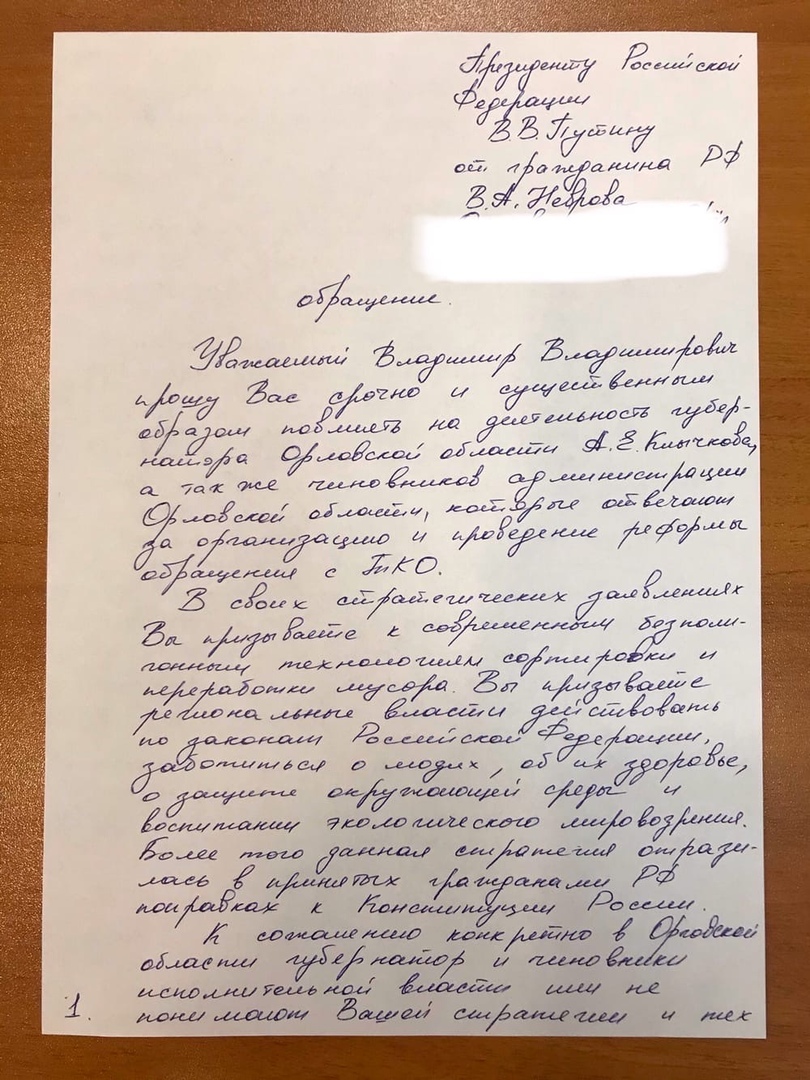 Президенту Российской
Федерации
В.В. Путину
от гражданина РФ
В.А. Неврова
обращение.
Уважаемый Владимир Владимирович
прошу Вас срочно и существенным
образом повлиять на деятельность губер-
натора Орловской области А.Е. Клычкова,
а так же чиновников администрации
Орловской области, которые отвечают
за организацию и проведение реформы
обращения с ТКО.
В своих стратегических заявлениях
Вы призываете к современным безполи-
гонным технологиям сортировки и
переработки мусора. Вы призываете
региональные власти действовать
по законам Российской Федерации,
заботиться о людях, об их здоровье,
о защите окружающей среды и
воспитании экологического мировозрения.
Более того данная стратегия отрази-
лась в принятых гражданами РФ
поправках к Конституции России.
К сожалению конкретно в Орловской
области губернатор и чиновники
исполнительной власти или не
1. понимают Вашей стратегии и тех